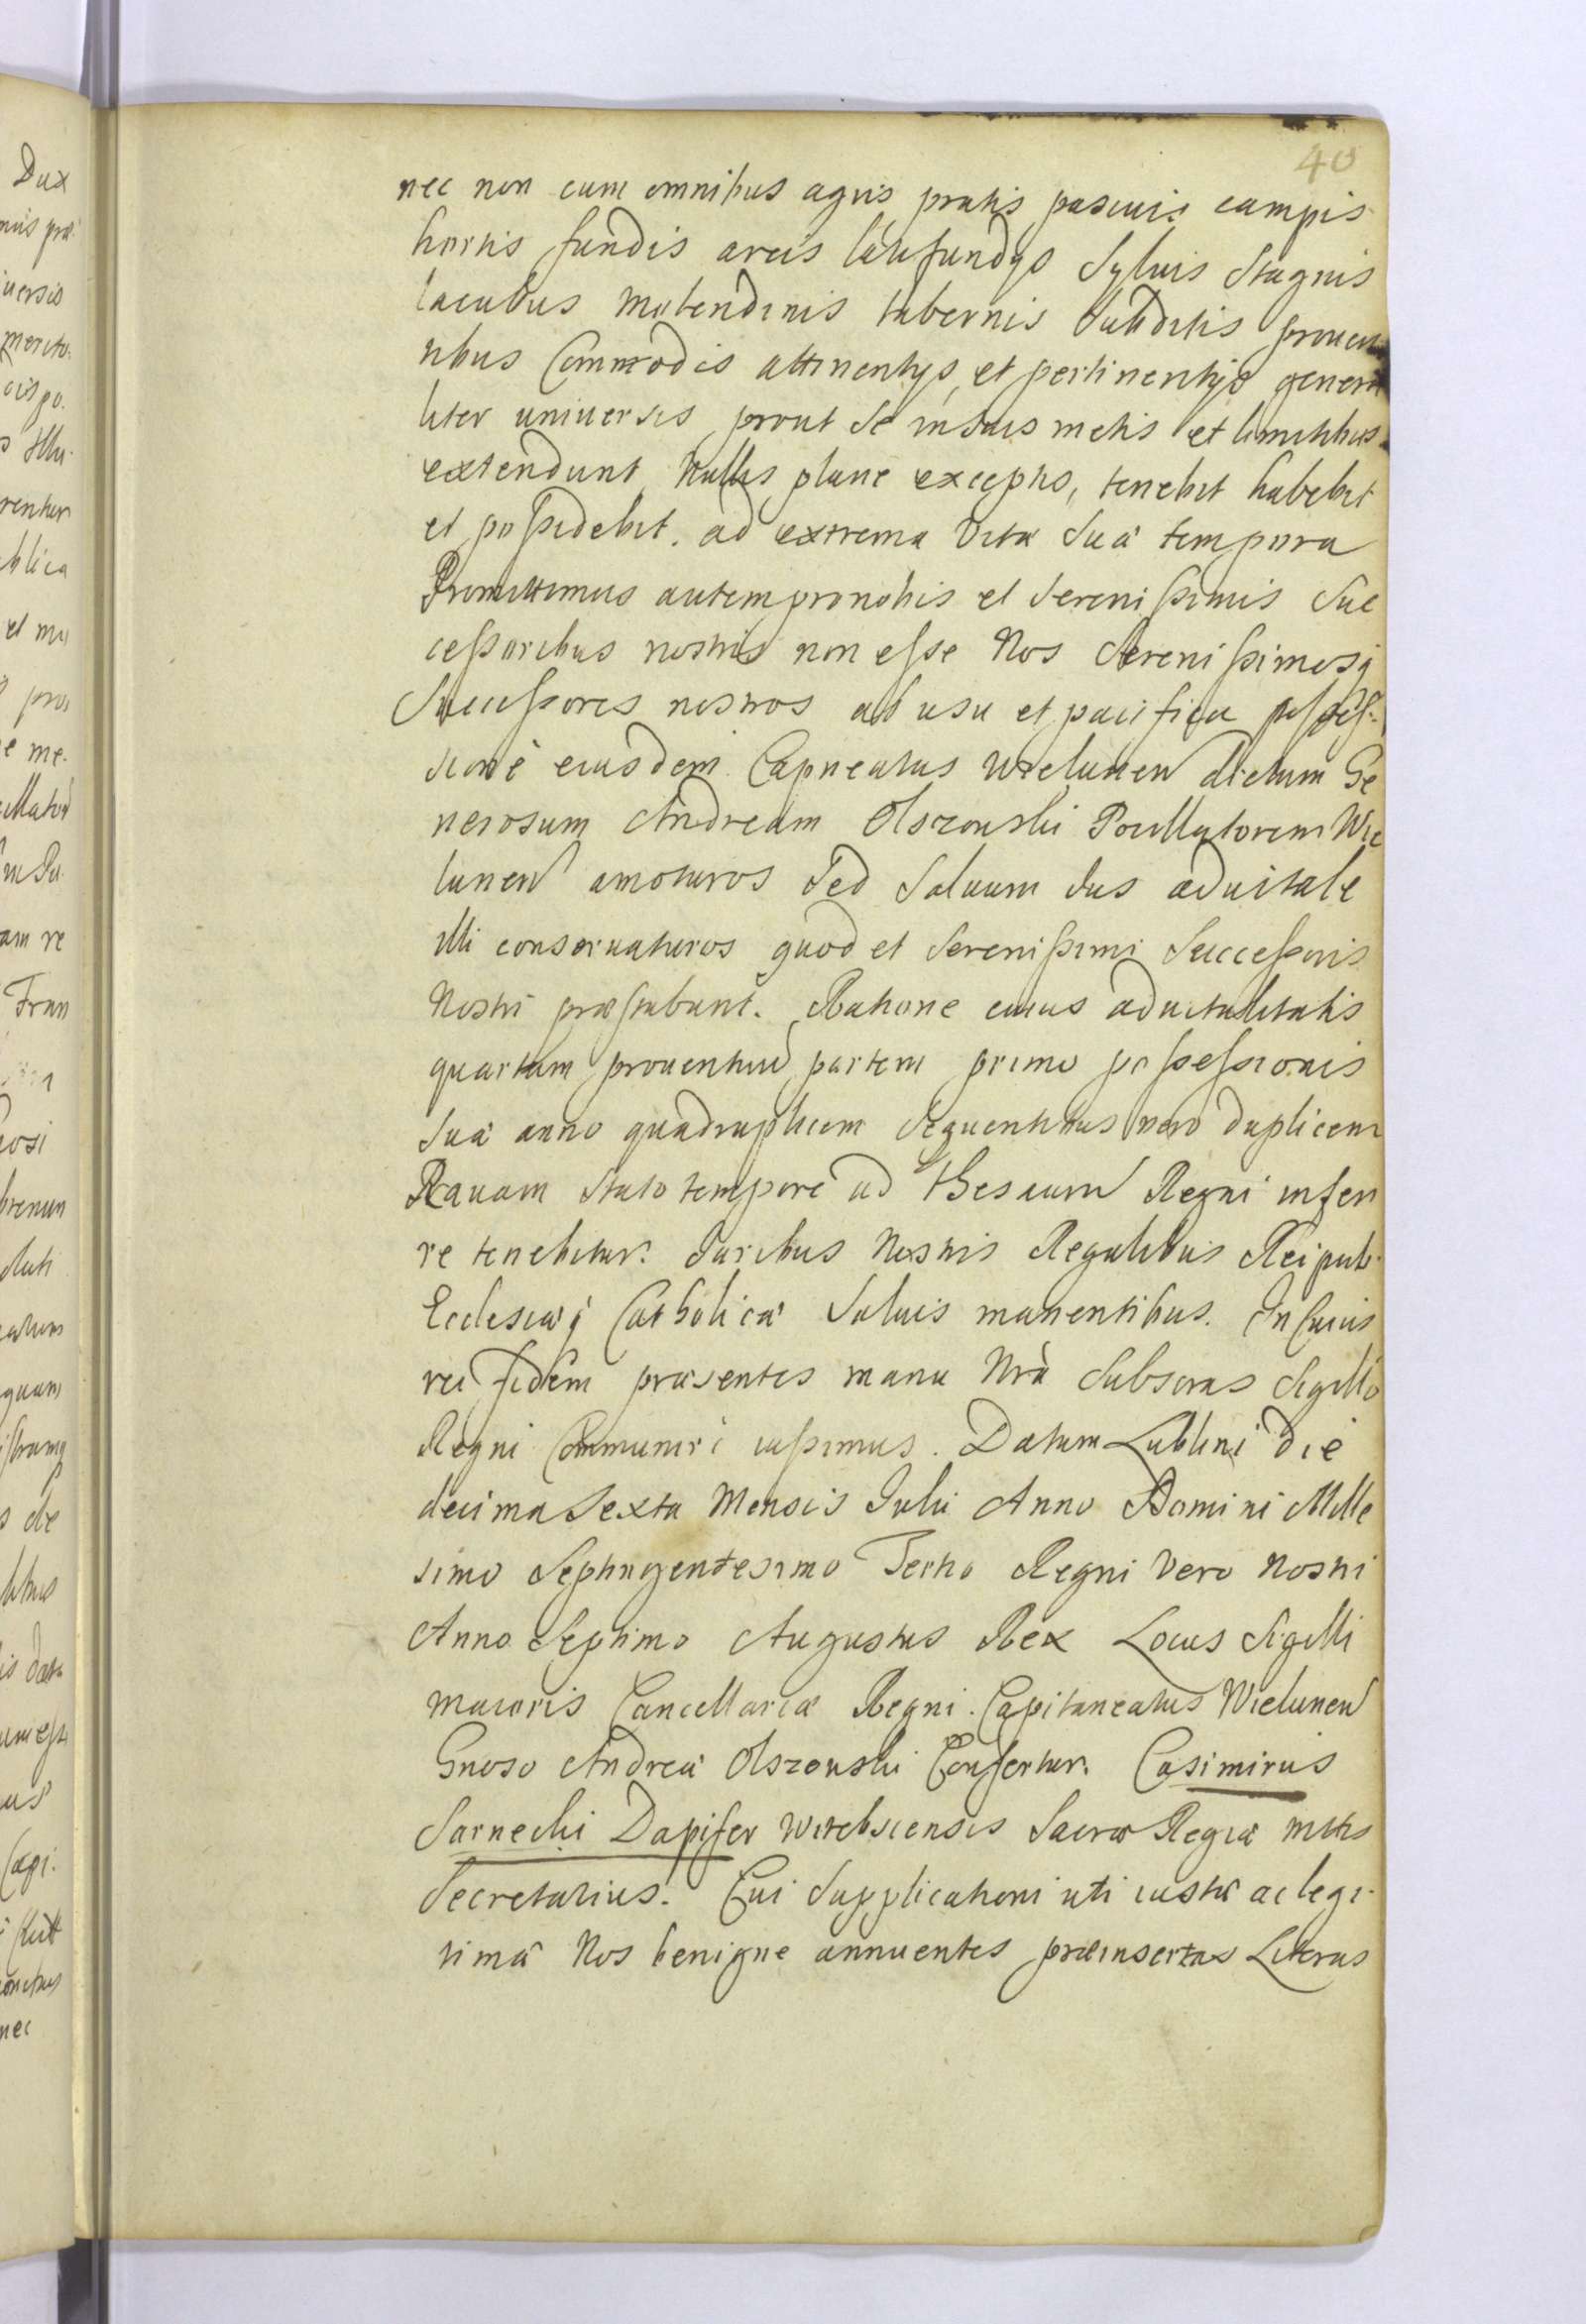 40
nec non cum omnibus agris pratis pascuis campis
hortis fundis areis latifundys Sylvis Stagnis
lacubus Molendinis tabernis Subditis proven
tibus Commodis attinentys et pertinentys genera
liter universis prout Se in suis metis et limitibus
extendunt Nullis plane exceptis, tenebit habebit
et possidebit. ad extrema Vitæ Suæ tempora
Promittimus autem pro nobis et Serenissimis Suc
cessoribus nostris non esse Nos Serenissimosq
Successores nostros ab usu et pacifica posses-
sione eiusdem Capneatus Wielunen dictum Ge
nerosum Andream Olszouski Pocillatorem Wie
lunen amoturos Sed Saluum Ius aduitale
illi conservaturos quod et Serenissimi Successoris
Nostri præstabunt. Ratione cuius aduitalitatis
quartam prouentuū partem primo possessionis
Suæ anno quadruplicem Sequentibus vero duplicem
Rauam Stato tempore ad thesaurū Regni infer
re tenebitur. Iuribus Nostris Regalibus Reipub.
Ecclesiæq Catholicæ Saluis manentibus. In Cuius
rei fidem præsentes manu Nrà Subscras Sigillo
Regni Communiri iussimus. Datum Lublini die
decima Sexta Mensis Iulii Anno Domini Mille
simo Septingentesimo Tertio Regni Vero Nostri
Anno Septimo Augustus Rex Locus Sigilli
maioris Cancellariæ Regni. Capitaneatus Wielunen
Gnoso Andreæ Olszouski Confertur. Casimirus
Sarnecki Dapifer Witebsciensis Sacræ Regiæ Mttis
Secretarius. Cui Supplicationi uti iustæ ac legi-
timæ Nos benigne annuentes præinsertas Literas